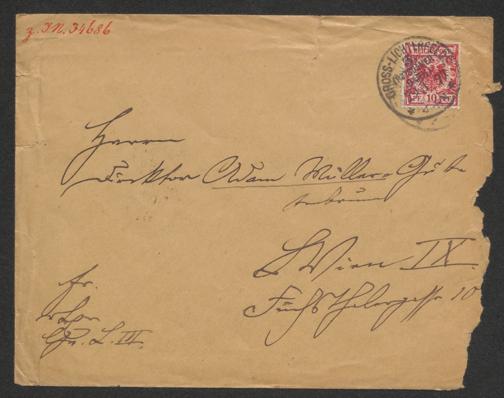 z. I.N. 34686
GROSS-LICHTERFELDE
10
Herrn
Direktor Adam Müller-Gutten
brunn
Wien IX.
Fuchsthalergasse 10
fr.